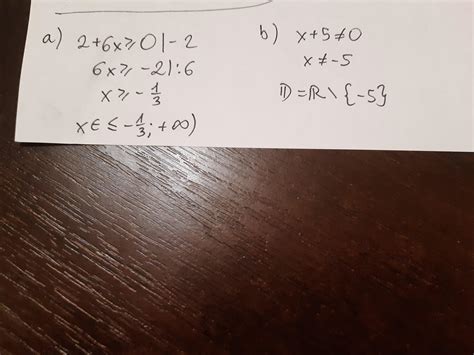 a) 2+6x ≥ 0 | -2
6x ≥ -2 | :6
x ≥ -1/3
x ∈ ≤ -1/3; +∞)
b) x+5 ≠ 0
x ≠ -5
D = ℝ \ {-5}